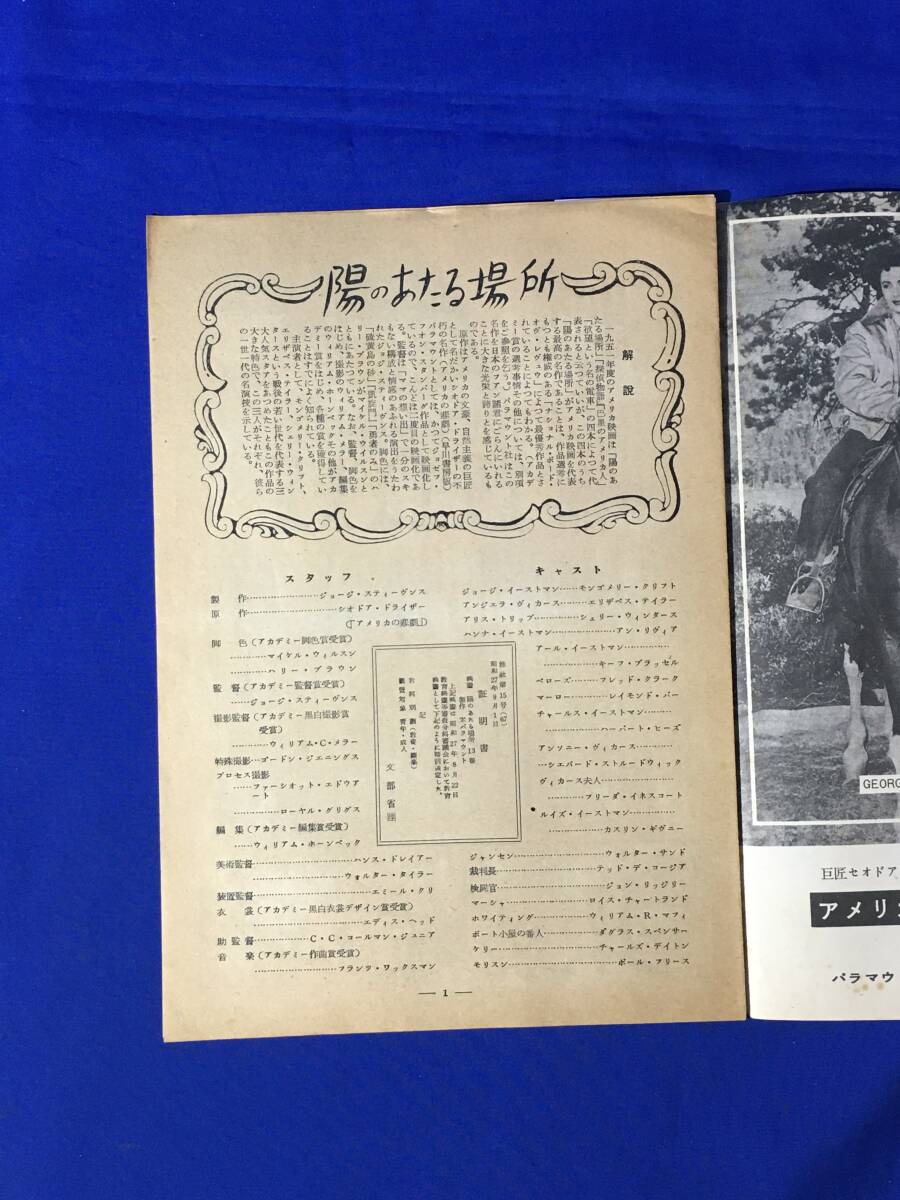 陽のあたる場所
解説
一九五一年度のアメリカ映画は「陽のあ
たる場所」「探偵物語」「巴里のアメリカ人」
「欲望という名の電車」の四本によつて代
表されると云つていいが、この四本のうち
「陽のあたる場所」がアメリカ映画を代表
する最高の名作であることは、作品選考に
もつとも権威のある「ナショナル・ボード・
オヴ・レヴュウ」によつて最優秀作品とさ
れていることによつてもわかる。（アカデ
ミー賞の選考事情その他については、別項
をご参照を乞う）パラマウント社はこの
名作を日本のフアン諸君にごらんにいれる
ことに大きな光栄と誇りとを感じているも
のである。
原作はアメリカの文豪、自然主義の巨匠
として名だかいシオドア・ドライザーの不
朽の名作「アメリカの悲劇」（早川書房版）
パラマウントとしては、かつてジョゼフ・
フオン・スタンバーグ作品として映画化し
ているので、こんどは二度目の映画化であ
る。監督は「ママの想い出」で一分のスキ
もない構成と情感のあふれる演出をうたわ
れたジョージ・スティーヴンス。脚色には、
「硫黄島の砂」「凱旋門」「勇者のみ」のハ
リー・ブラウンがマイケル・ウイルスンと
ともにあたつている。なお、監督、脚色を
はじめ、撮影のウィリアム・メラー、編集
のウィリアム・ホーンベックその他がアカ
デミー賞をはじめ、各種の賞を獲得してい
ることはすでによく知れている。
主演者として、モンゴメリー・クリフト、
エリザベス・テイラー、シェリー・ウィン
タースという戦後の若い世代を代表する三
大人気スタアをあつめたこともこの作品の
大きな特色で、この三人がそれぞれ、彼ら
の一世一代の名演技を示している。
スタッフ
製作……ジョージ・スティーヴンス
原作……シオドア・ドライザー
（「アメリカの悲劇」）
脚色（アカデミー脚色賞受賞）
……マイケル・ウィルスン
……ハリー・ブラウン
監督（アカデミー監督賞受賞）
……ジョージ・スティーヴンス
撮影監督（アカデミー黒白撮影賞
受賞）
……ウィリアム・C・メラー
特殊撮影……ゴードン・ジェニングス
プロセス撮影
……ファーシオット・エドウア
ート
……ローヤル・グリグス
編集（アカデミー編集賞受賞）
……ウィリアム・ホーンベック
美術監督……ハンス・ドレイアー
……ウォルター・タイラー
装置監督……エミール・クリ
衣裳（アカデミー黒白衣裳デザイン賞受賞）
……エディス・ヘッド
助監督……C・C・コールマン・ジュニア
音楽（アカデミー作曲賞受賞）
……フランツ・ワックスマン
キャスト
ジョージ・イーストマン……モンゴメリー・クリフト
アンジェラ・ヴィカース……エリザベス・テイラー
アリス・トリップ……シェリー・ウィンタース
ハンナ・イーストマン……アン・リヴィア
アール・イーストマン……
……キーフ・ブラッセル
ベローズ……フレッド・クラーク
マーロー……レイモンド・バー
チャールス・イーストマン……
……ハーバート・ヒーズ
アンソニー・ヴィカース……
……シェパード・ストルードウィック
ヴィカース夫人……
……フリーダ・イネスコート
ルイズ・イーストマン……
……カスリン・ギヴニー
ジャンセン……ウォルター・サンド
裁判長……テッド・デ・コージア
検屍官……ジョン・リッジリー
マーシャ……ロイス・チャートランド
ホワイティング……ウィリアム・R・マフィ
ボート小屋の番人……ダグラス・スペンサー
ケリー……チャールズ・デイトン
モリスン……ポール・フリース
昭和27年9月1日
証明書
映画 陽のあたる場所 13巻
製作 米パラマウント
上記映画は昭和27年8月22日
教育映画等審査分科審議会において教育
映画として下記のように特別選定した。
記
観覧対象 青年・成人
文部省
— 1 —
GEORG
巨匠セオドア
アメリカ
パラマウ